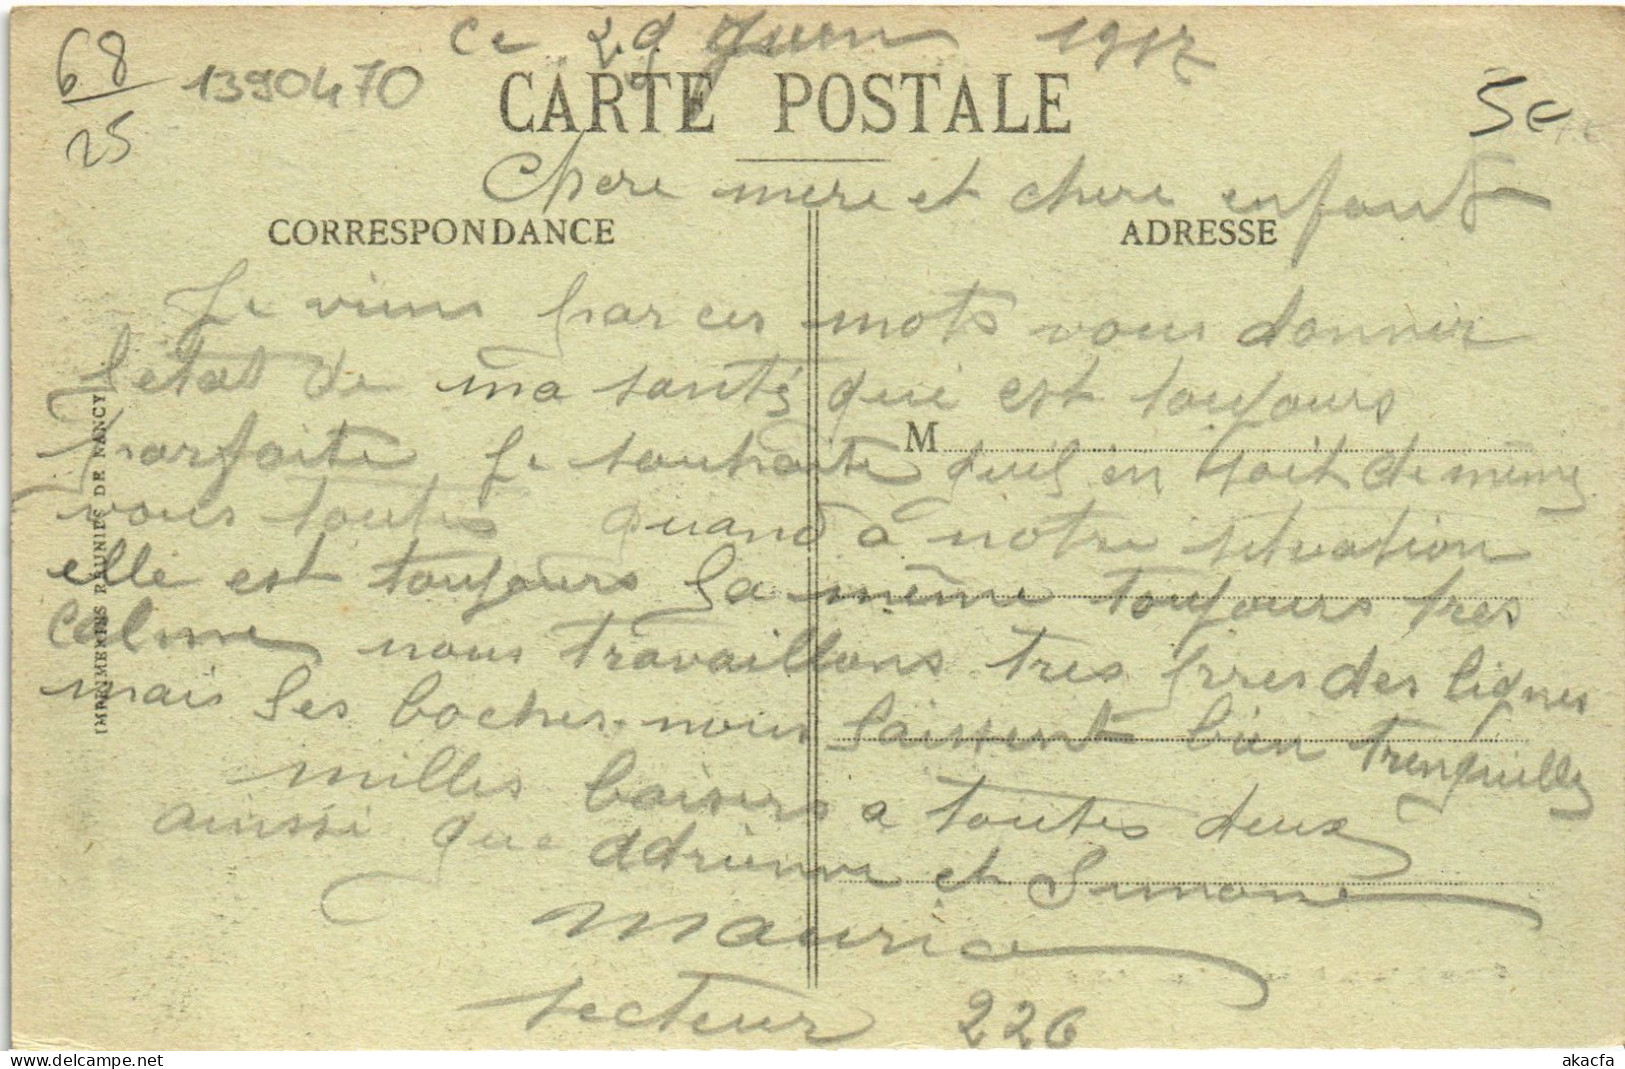 Ce 29 Juin 1917
68
25
1390470
5€
CARTE POSTALE
Chere mere et chere enfant
CORRESPONDANCE
ADRESSE
Je viens par ces mots vous donner
l'etat de ma santé qui est toujours
parfaite Je souhaite quel en soit de même
M
vous toutes quand a notre situation
elle est toujours la même toujours tres
calme nous travaillons tres pres des lignes
mais les boches nous laissent bien trenquilles
milles baisers a toutes deux
ainssi que Adrienne et Simone
Maurice
secteur 226
IMPRIMERIES RÉUNIES DE NANCY
akacfa.com